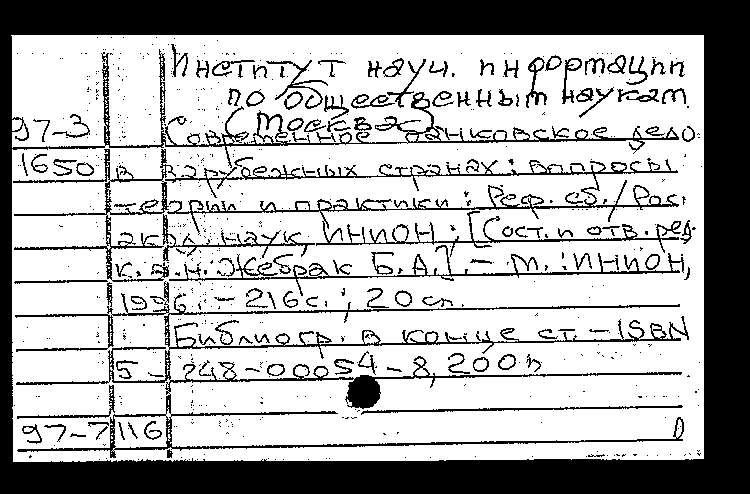 Институт науч. информации
по общественным наукам
(Москва)
97-3 Современное банковское дело
1650 в зарубежных странах: вопросы
теории и практики: Реф. сб./Рос.
акад. наук, ИНИОН; [Сост. и отв. ред.
к.э.н. Жебрак Б.А.]. - М.: ИНИОН,
1996. - 216с.; 20 см.
Библиогр. в конце ст. - ISBN
5-248-00054-8, 200
97-7 116